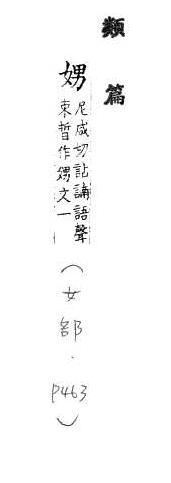 類篇
娚
尼咸切詀諵語聲
束晳作娚文一
（女部．P463）